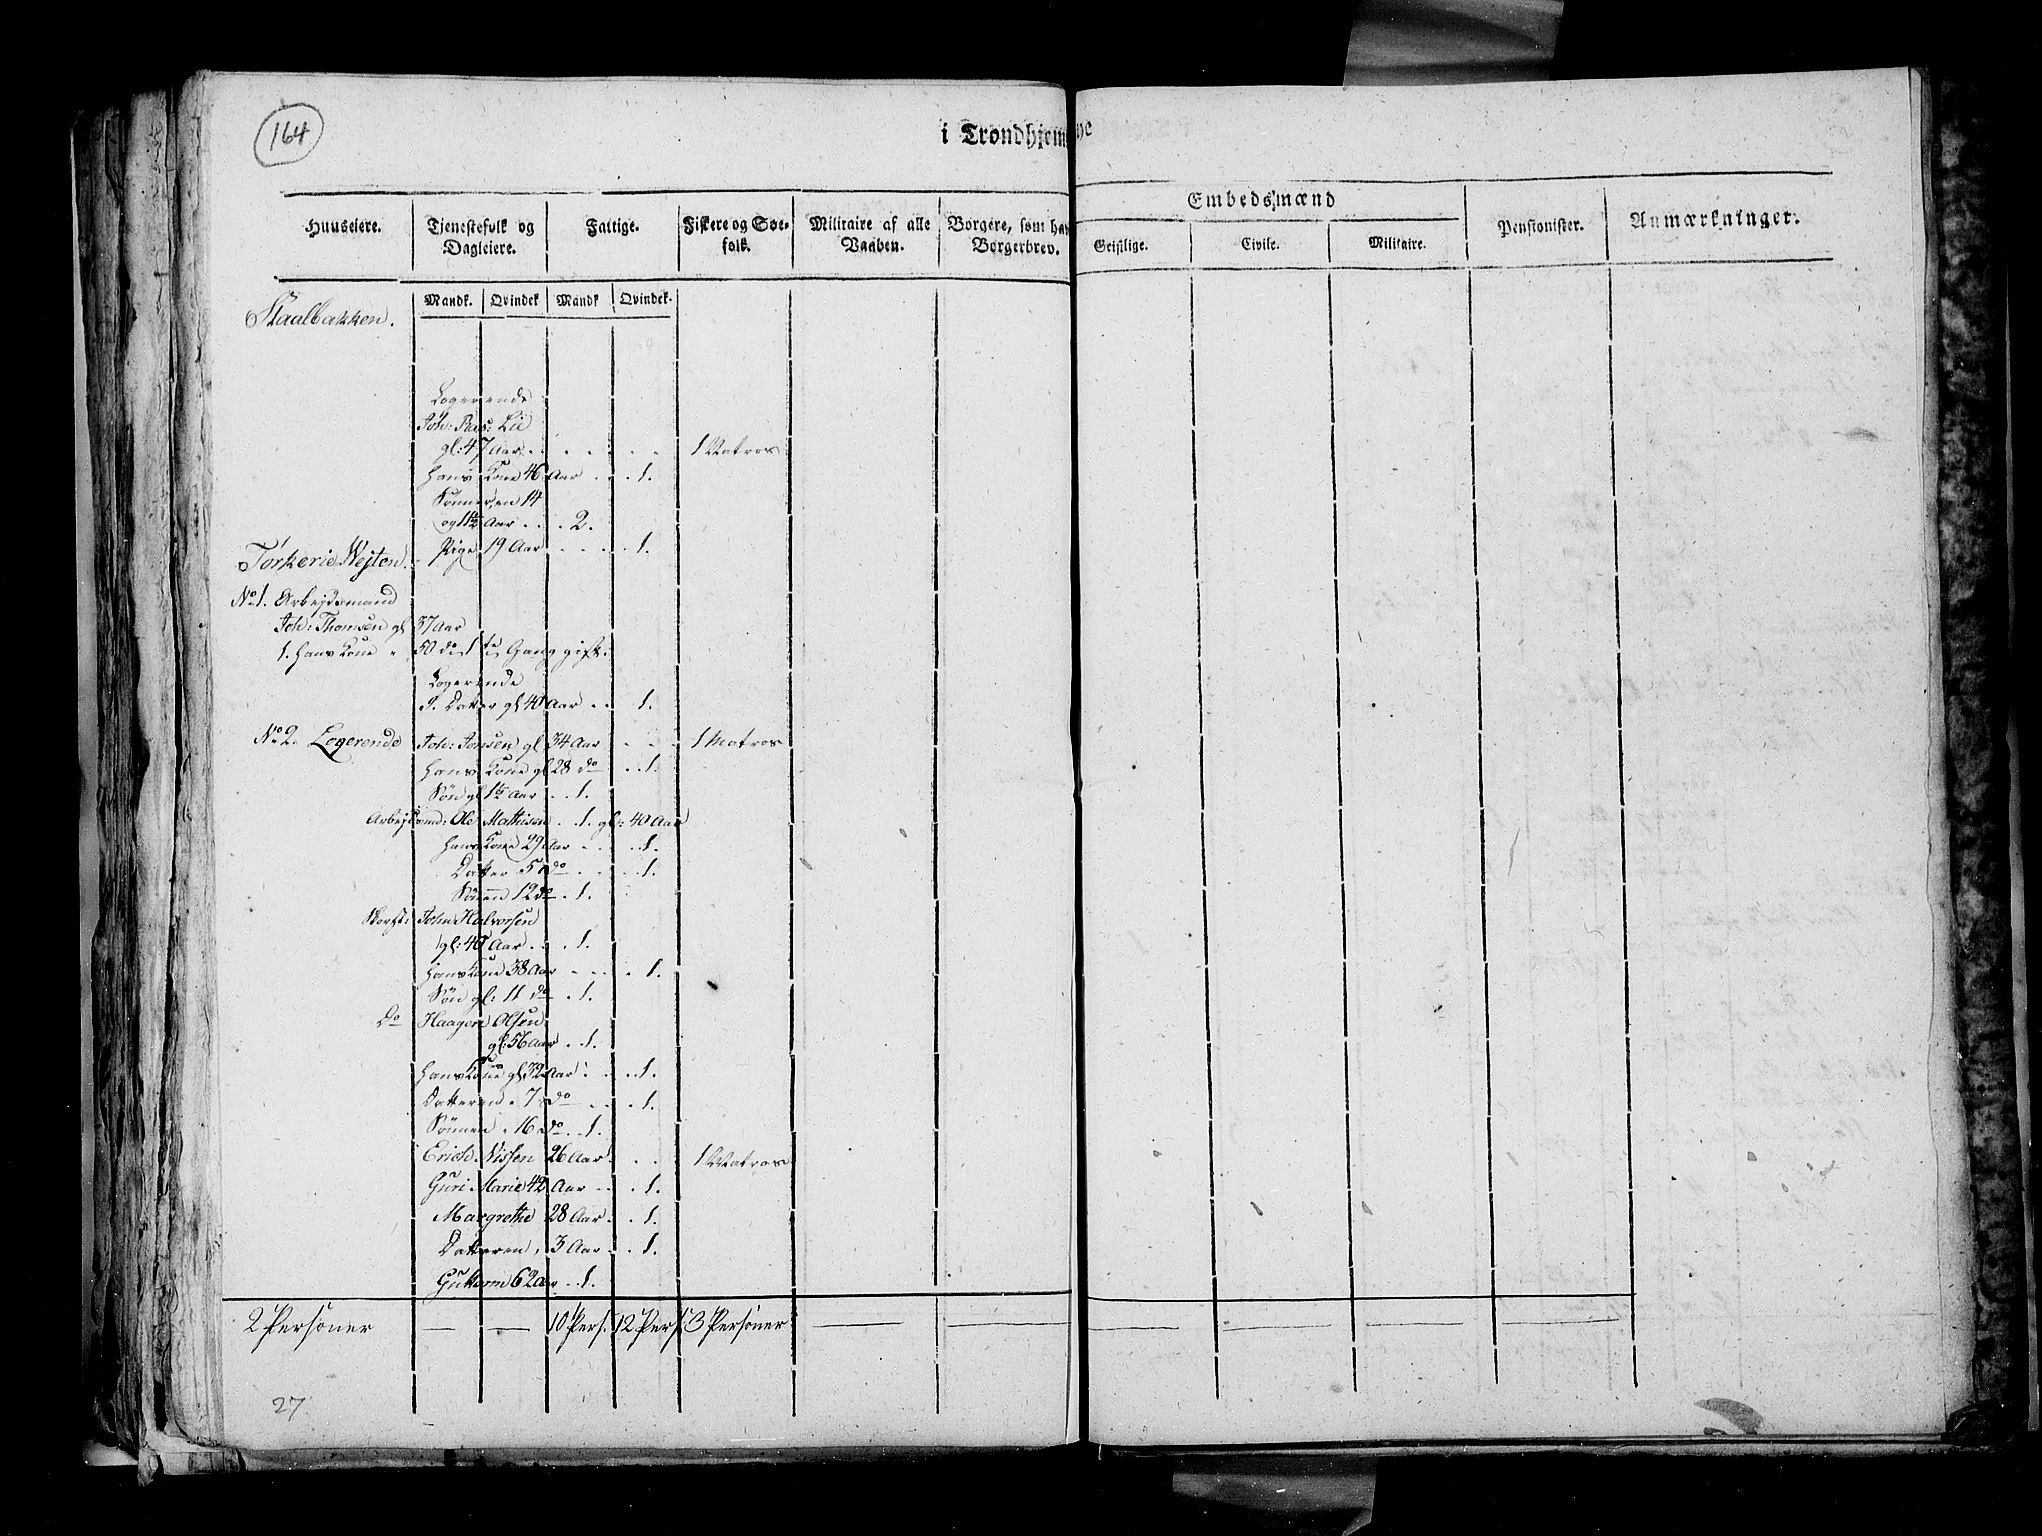 164
i Trondhjem ye
Huuseiere.
Tjenestefolk og Dagleiere.
Fattige.
Fiskere og Søefolk.
Militaire af alle Vaaben.
Borgere, som hav Borgerbrev.
Embedsmænd
Geistlige.
Civile.
Militaire.
Pensionister.
Anmærkninger.
Mandk. Qvindek Mandk Qvindek.
Staalbakken.
Logerende
Joh: Ras: Lie
gl: 47 Aar . . . . . . 1 Matros
hans Kone 46 Aar . . . 1.
Sønner en 14
og 11½ Aar . . . 2.
Pige 19 Aar . . . . . 1.
Tørkerie Wejten.
No 1. Arbejdsmand
Joh: Thomsen gl 37 Aar
1. hans Kone " 50 do 1te Gang gift.
Logerende
Datter gl 40 Aar . . 1.
No 2. Logerende Joh: Jonsen gl 34 Aar . . . 1 Matros
hans Kone gl 28 do . . 1.
Søn gl 1½ Aar . . 1.
Arbejdsmd: Ole Mathisen . 1. gl: 40 Aar
hans Kone 29 Aar . . . 1.
Datter 5 do . . . . 1.
Sønnen 12 do . 1.
John Halvorsen
gl: 40 Aar . . . 1.
hans Kone 38 Aar . . . . 1.
Søn gl: 11 do . 1.
Do Haagen Olsen
gl: 56 Aar . . 1.
hans Kone gl 32 Aar . . . 1.
Datteren " 7 do . . . 1.
Sønnen " 16 do . . 1.
Erich Nissen 26 Aar . . . 1 Matros
Guri Marie 42 Aar . . . 1.
Margrethe 28 Aar . . 1.
Datteren " 3 Aar . . . 1.
Guttorm 62 Aar . . 1.
2 Personer — — 10 Pers. 12 Pers. 3 Personer — — — — — —
27